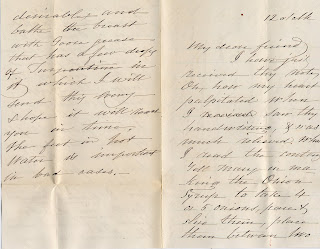 12 o'clk
My dear friend
I have just
received thy note,
Oh, how my heart
palpitated when
I saw thy
handwriting, & was
much relieved, when
I read the contents
Tell Mary in ma
king the Onion
Syrup to take 4
or 5 onions, pare &
slice them, place
them between two
desirable, and
bathe the breast
with Goose grease
that has a few drops
of Turpentine in
it, which I will
send thee
I hope it will reach
you in time.
The feet in hot
Water is important
in bad cases.